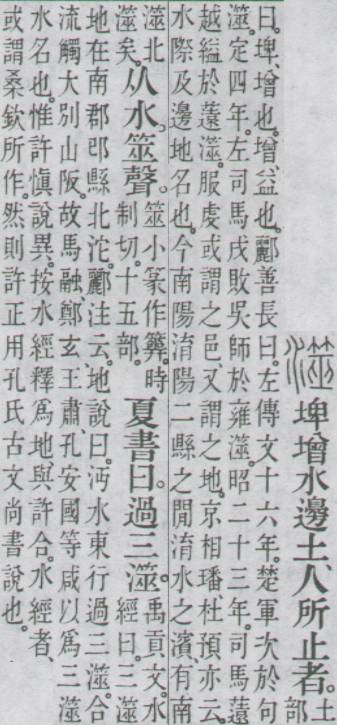 澨 埤增水邊土人所止者。土部
曰。埤、增也。增、益也。酈善長曰。左傳文十六年。楚軍次於句
澨。定四年。左司馬戌敗吳師於雍澨。昭二十三年。司馬薳
越縊於薳澨。服虔或謂之邑。又謂之地。京相璠、杜預亦云。
水際及邊地名也。今南陽淯陽二縣之閒淯水之濱有南
澨北
澨矣。
从水。筮聲。
筮小篆作簭。時
制切。十五部。
夏書曰。過三澨。
禹貢文。水
經曰。三澨
地在南郡邔縣北沱。酈注云。地說曰。沔水東行過三澨合
流觸大別山阪。故馬融、鄭玄、王肅、孔安國等咸以爲三澨
水名也。惟許愼說異。按水經釋爲地。與許合。水經者、
或謂桑欽所作。然則許正用孔氏古文尚書說也。